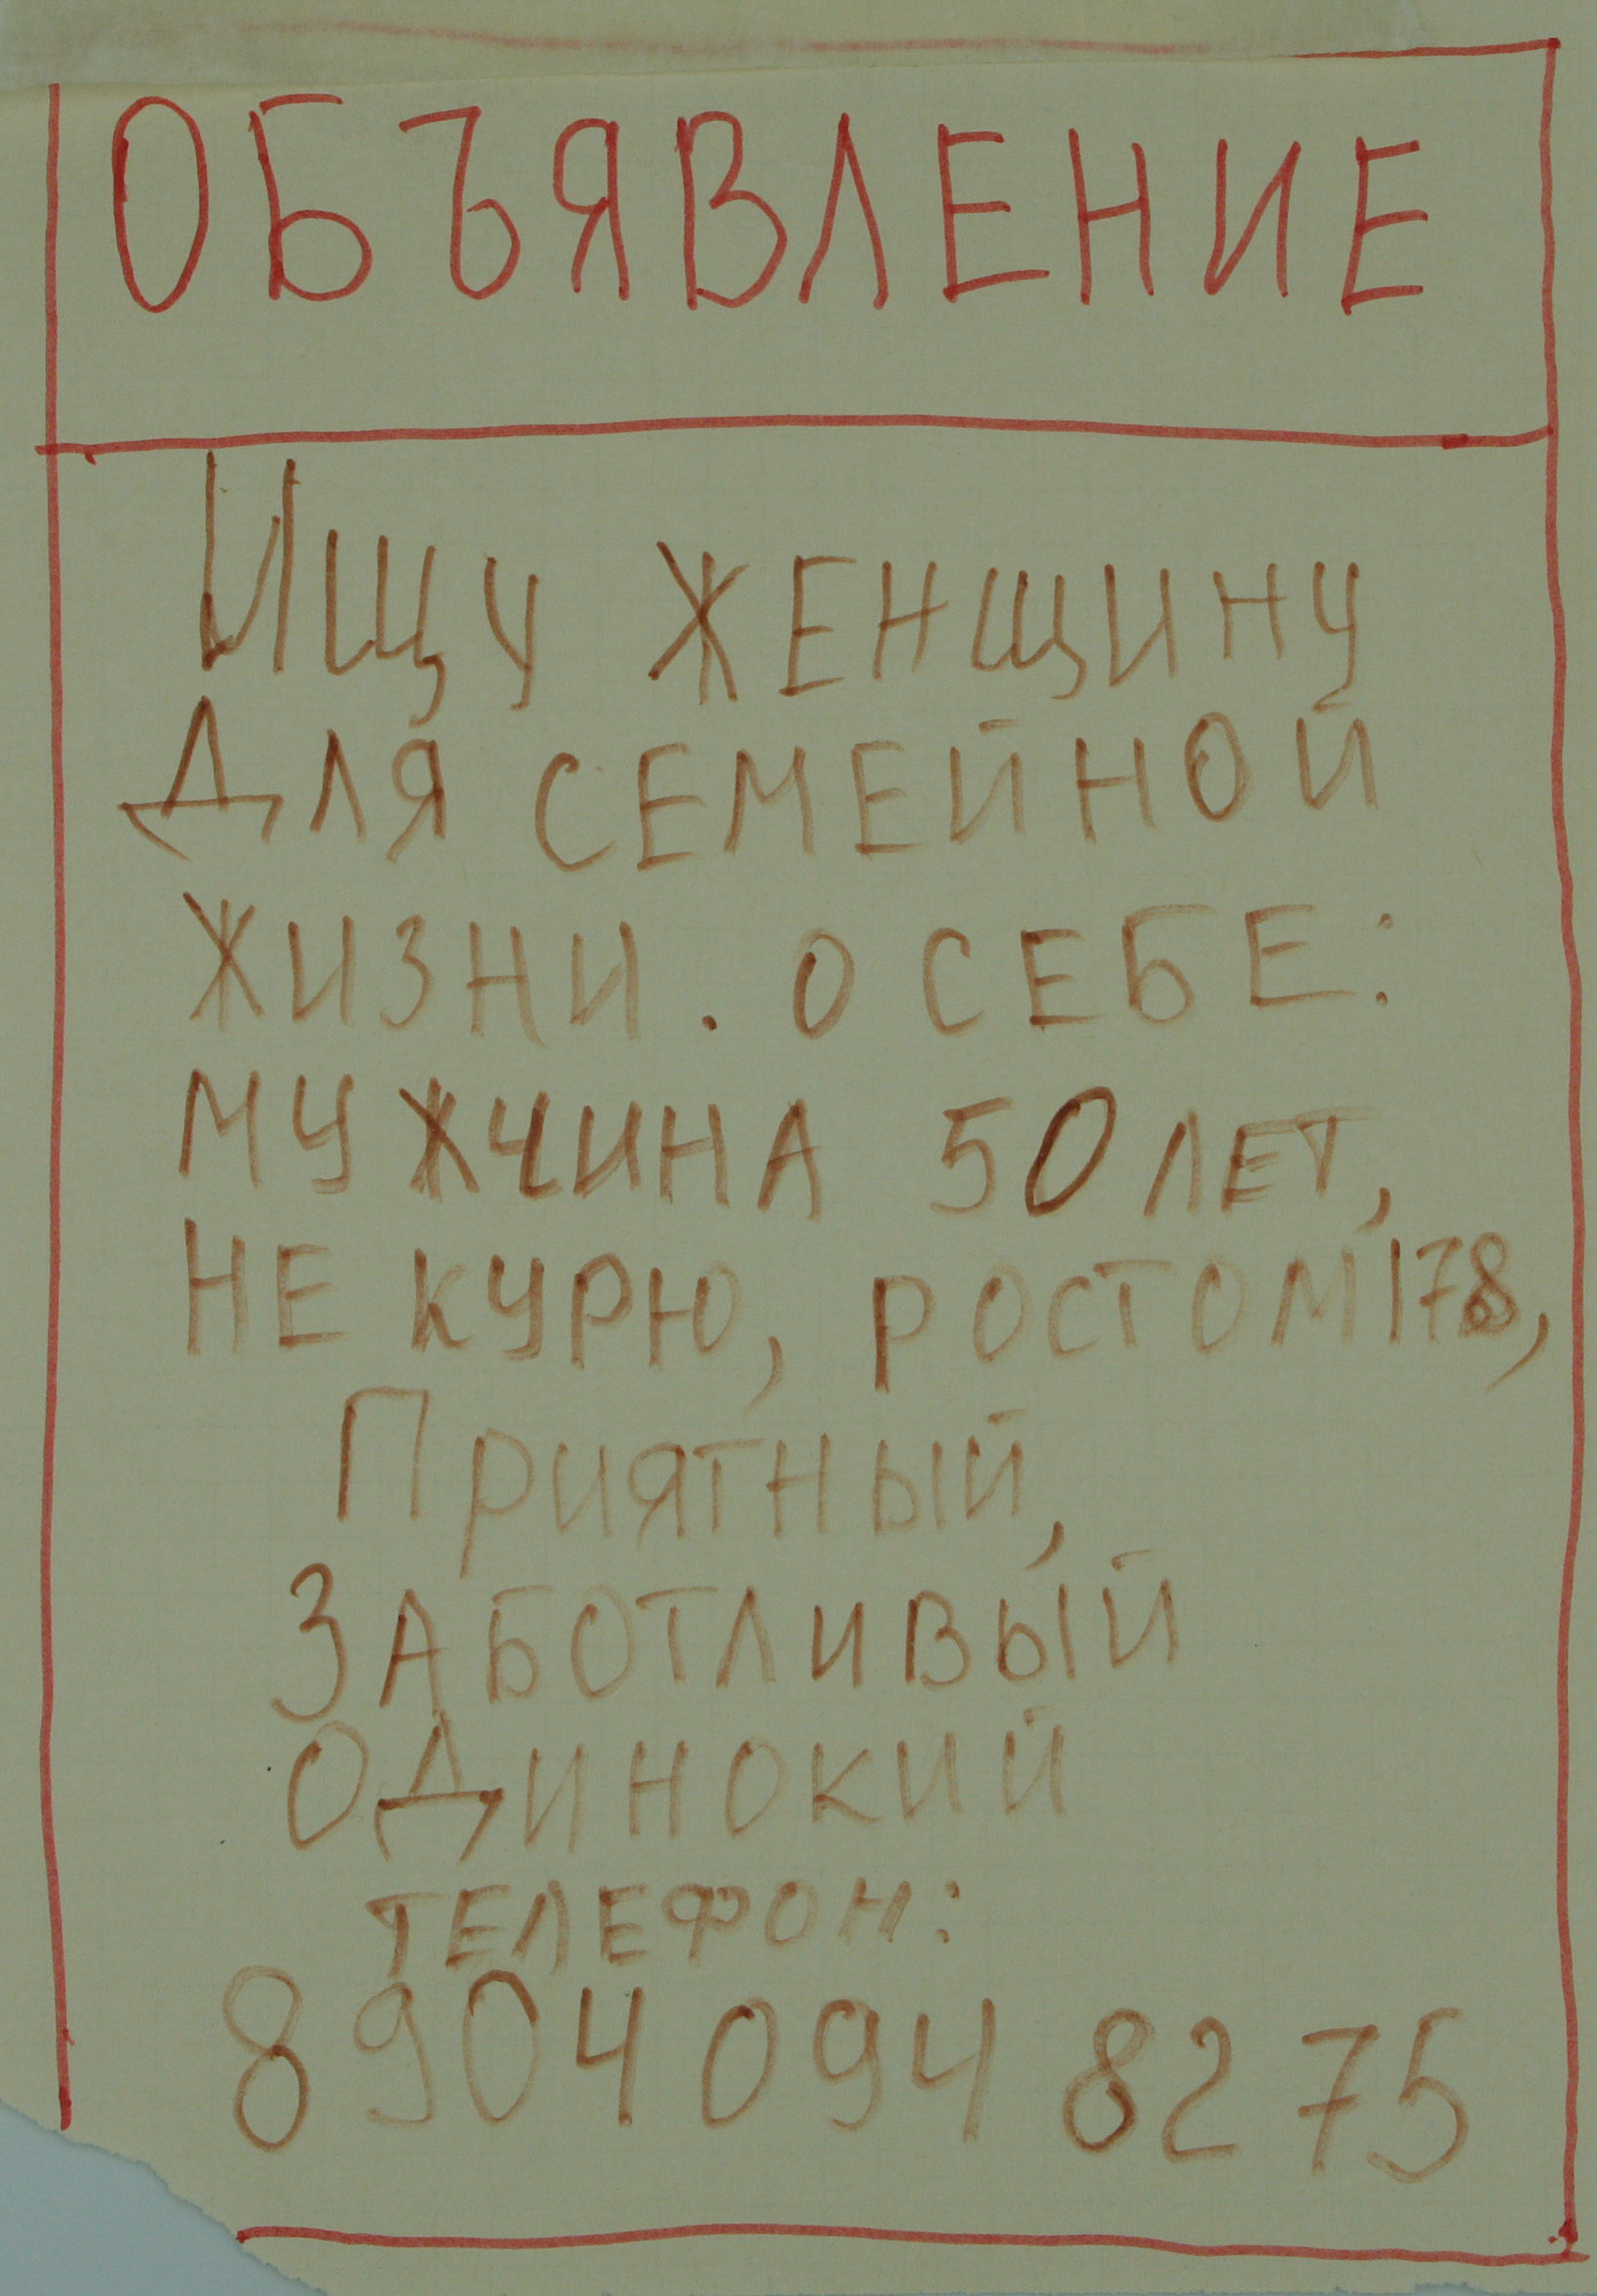 ОБЪЯВЛЕНИЕ
Ищу ЖЕНЩИНУ
Для СЕМЕЙНОЙ
ЖИЗНИ. О СЕБЕ:
МУЖЧИНА 50 ЛЕТ,
НЕ КУРЮ, РОСТОМ 178,
Приятный,
ЗАБОТЛИВЫЙ
ОДИНОКИЙ
ТЕЛЕФОН:
8904 094 82 75